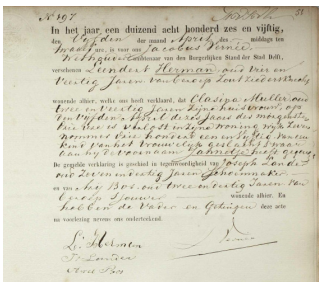 No 197
51
In het jaar, een duizend acht honderd zes en vijftig,
den vijfden der maand April des middags ten
twaalf ure, is voor ons Jacobus Vernée
Wethouder Ambtenaar van den Burgerlijken Stand der Stad Delft,
verschenen Leendert Herman oud vier en
veertig Jaren van beroep Zoutzieders knecht
wonende alhier, welke ons heeft verklaard, dat Clasina Muller oud
twee en veertig Jaren Zijne huisvrouw, op
den vijfden April dezes Jaars des morgens
ten drie ure is verlost in zijne woning wijk zeven
nommer vier honderd een en vijftig van een
kind van het vrouwelijk geslacht waar
aan hij de voornaam Jannetje heeft gegeven
De gegevene verklaring is geschied in tegenwoordigheid van Joseph Londer
oud Zeven en veertig Jaren Schoenmaker
en van Arij Bos oud twee en veertig Jaren van
beroep Sjouwer wonende alhier. En
hebben de Vader en Getuigen deze acte
na voorlezing nevens ons onderteekend.
L: Herman
Js Londer
Arie Bos
J Vernée